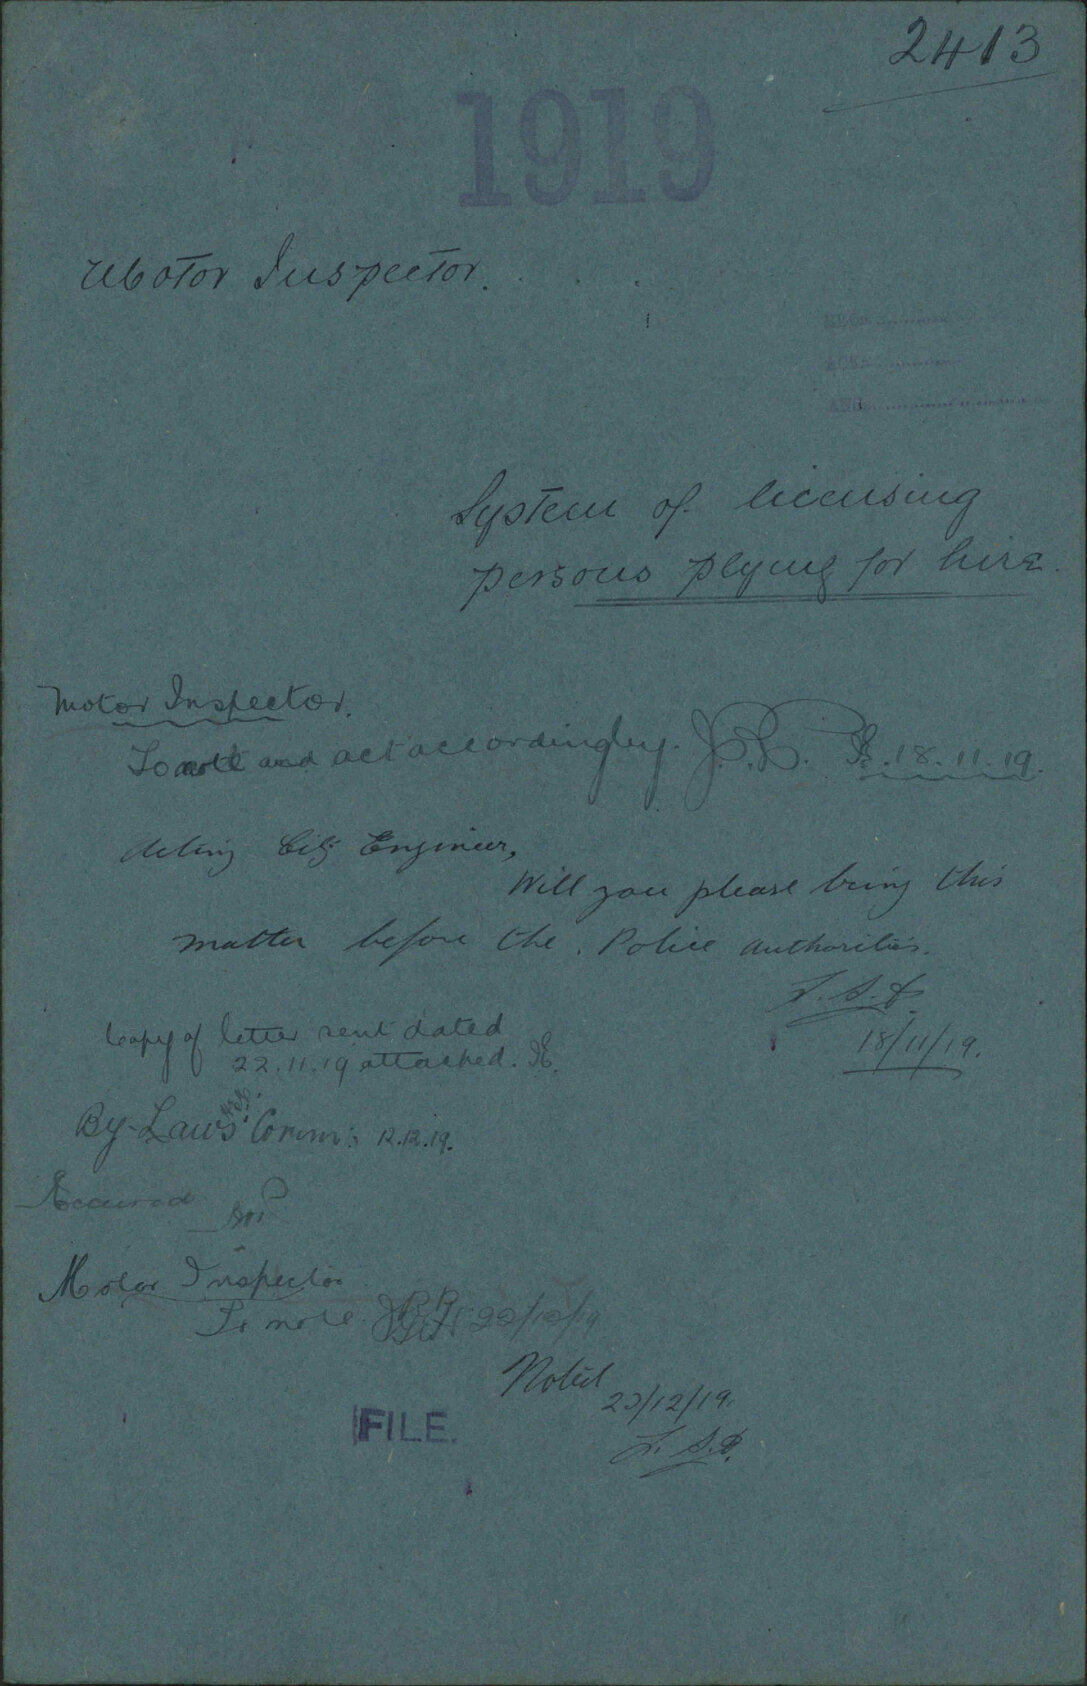 2413
1919
Motor Inspector.
System of licensing
persons plying for hire.
Motor Inspector.
To note and act accordingly. 18.11.19.
Acting City Engineer,
Will you please bring this
matter before the Police authorities.
18/11/19.
Copy of letter sent dated
22.11.19 attached.
By-Laws Comm: 12.12.19.
Motor Inspector
To note 22/12/19
Noted
23/12/19.
FILE.